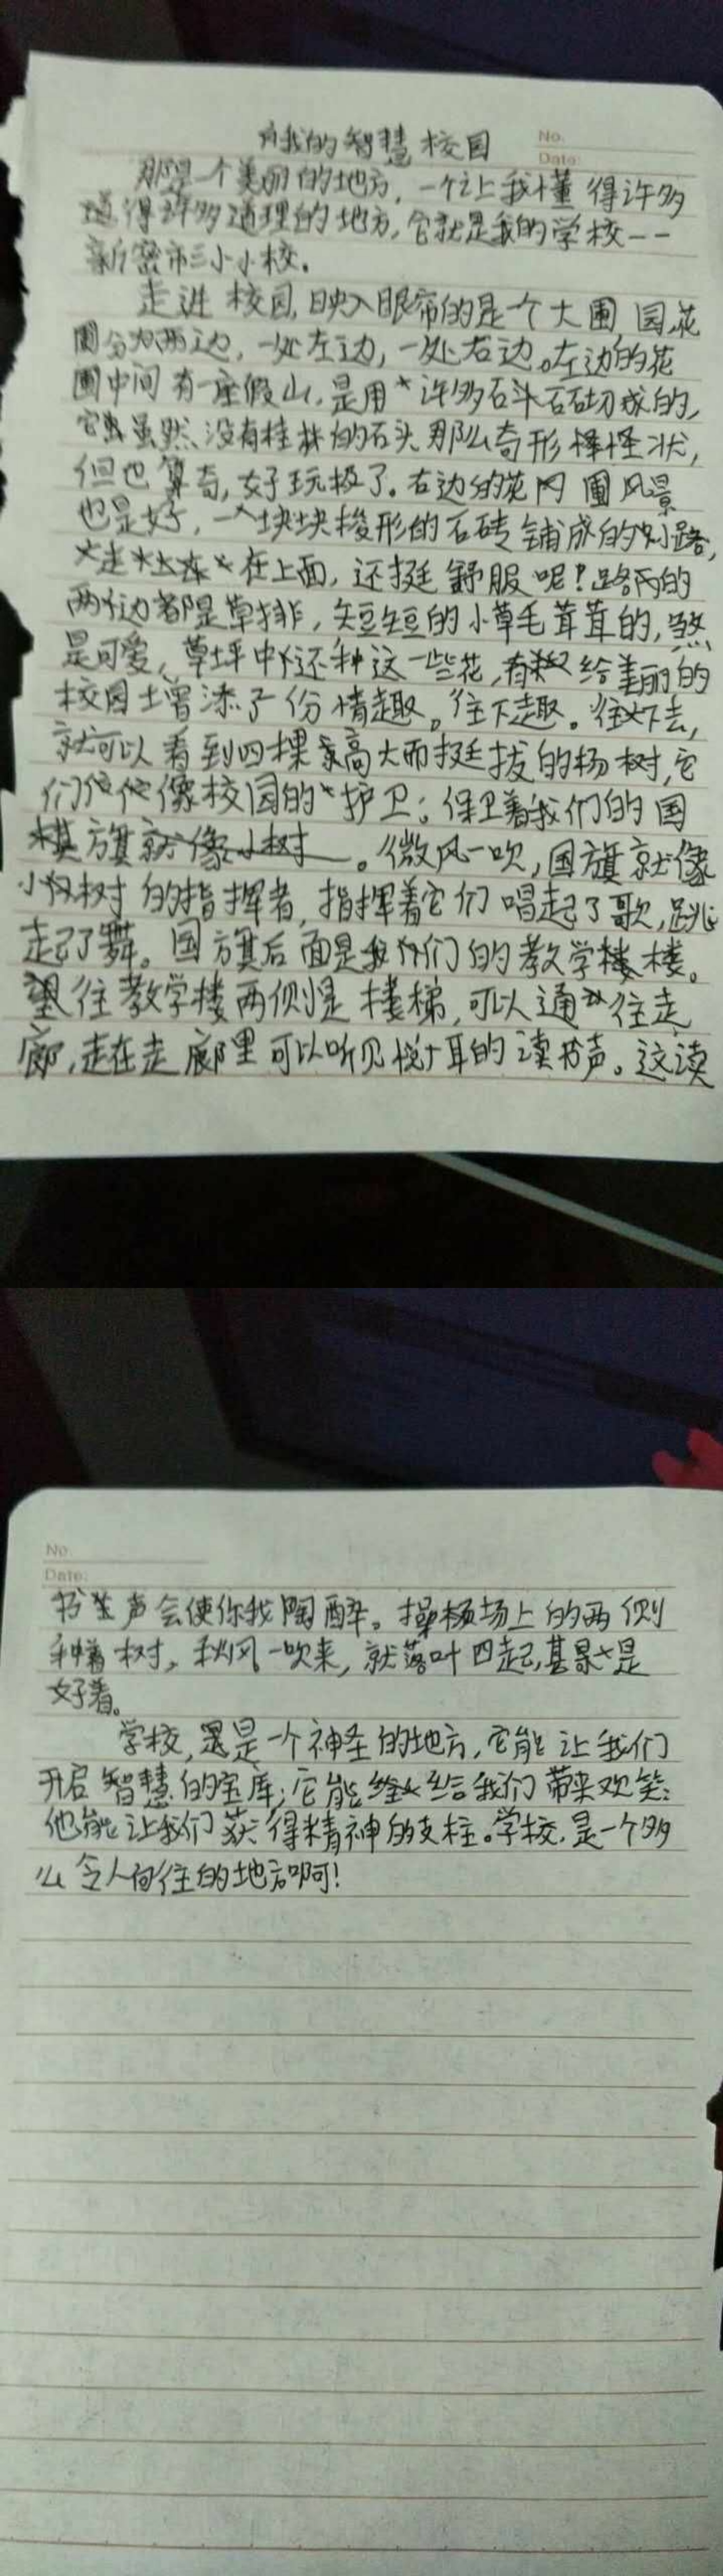 我的智慧校园
No.
Date:
那是一个美丽的地方，一个让我懂得许多
道得许多道理的地方，它就是我的学校——
新密市三小小校。
走进校园，映入眼帘的是一个大圃园，花
圃分为两边，一处左边，一处右边。左边的花
圃中间有一座假山，是用许多石头石砌成的，
它虽虽然没有桂林的石头那么奇形怪怪状，
但也算奇，好玩极了。右边的花圃风景
也是好，一块块梭形的石砖铺成的小路，
走在上面，还挺舒服呢！路两的
两边都是草排，短短的小草毛茸茸的，煞
是可爱，草坪中还种这一些花，有给美丽的
校园增添了份情趣。往下趣。往下去，
就可以看到四棵高大而挺拔的杨树，它
们像校园的护卫；保卫着我们的国
棋旗就像小树。微风一吹，国旗就像
小树的指挥者，指挥着它们唱起了歌，跳
起了舞。国旗后面是我们的教学楼楼。
望往教学楼两侧是楼梯，可以通往走
廊，走在走廊里可以听见悦耳的读书声。这读
No.
Date:
书声会使你我陶醉。操场上的两侧
种着树，秋风一吹来，就落叶四起，甚是
好看。
学校，是一个神圣的地方，它能让我们
开启智慧的宝库；它能给我们带来欢笑；
他能让我们获得精神的支柱。学校，是一个多
么令人向往的地方啊！